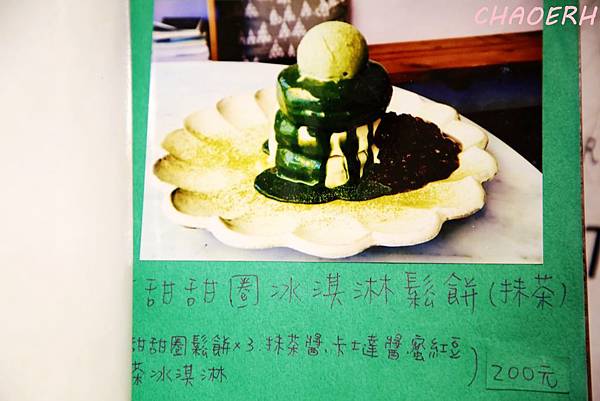 CHAOERH
甜甜圈冰淇淋鬆餅(抹茶)
甜甜圈鬆餅×3.抹茶醬、卡士達醬.蜜紅豆
茶冰淇淋)
200元